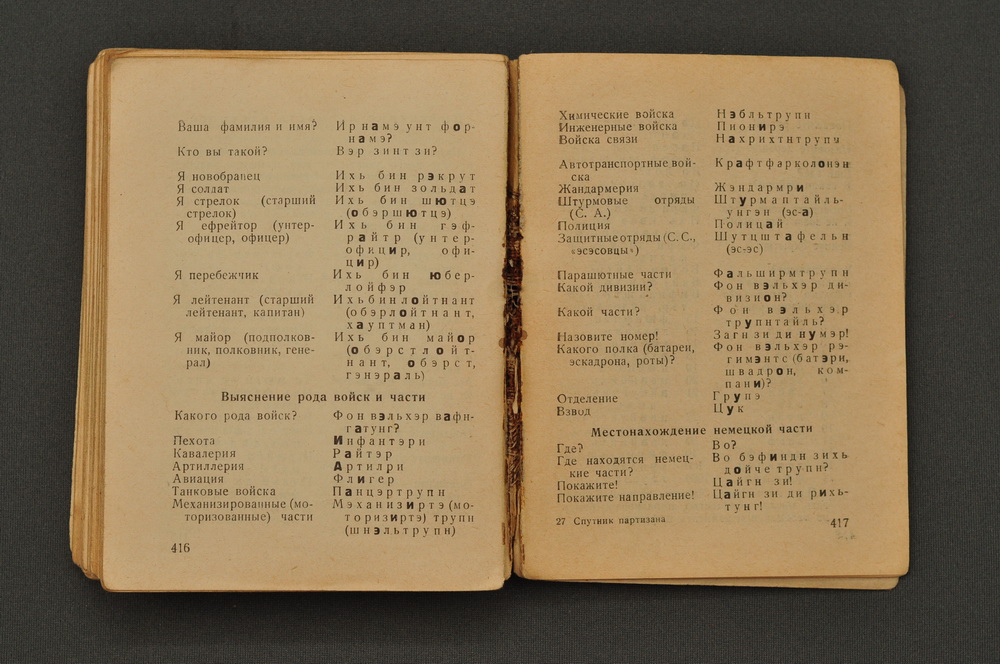 Ваша фамилия и имя? Ир намэ унт фор-
намэ?
Кто вы такой? Вэр зинт зи?
Я новобранец Ихь бин рэкрут
Я солдат Ихь бин зольдат
Я стрелок (старший Ихь бин шютцэ
стрелок) (обэршютцэ)
Я ефрейтор (унтер- Ихь бин гэф-
офицер, офицер) райтр (унтер-
официр, офи-
цир)
Я перебежчик Ихь бин юбер-
лойфэр
Я лейтенант (старший Ихь бин лойтнант
лейтенант, капитан) (обэрлойтнант,
хауптман)
Я майор (подполков- Ихь бин майор
ник, полковник, гене- (обэрстлойт-
рал) нант, обэрст,
гэнэраль)
Выяснение рода войск и части
Какого рода войск? Фон вэльхэр вафн-
гатунг?
Пехота Инфантэри
Кавалерия Райтэр
Артиллерия Артилри
Авиация Флигер
Танковые войска Панцэртрупн
Механизированные (мо- Мэханизиртэ (мо-
торизованные) части торизиртэ) трупн
(шнэльтрупн)
416
Химические войска Нэбльтрупн
Инженерные войска Пионирэ
Войска связи Нахрихтнтрупн
Автотранспортные вой- Крафтфарколонэн
ска
Жандармерия Жэндармри
Штурмовые отряды Штурмаптайль-
(С. А.) унгэн (эс-а)
Полиция Полицай
Защитные отряды (С. С., Шутцштафельн
„эсэсовцы“) (эс-эс)
Парашютные части Фальширмтрупн
Какой дивизии? Фон вэльхэр ди-
визион?
Какой части? Фон вэльхэр
трупнтайль?
Назовите номер! Загн зи ди нумэр!
Какого полка (батареи, Фон вэльхэр рэ-
эскадрона, роты)? гимэнтс (батэри,
швадрон, ком-
пани)?
Отделение Групэ
Взвод Цук
Местонахождение немецкой части
Где? Во?
Где находятся немец- Во бэфиндн зихь
кие части? дойче трупн?
Покажите! Цайгн зи!
Покажите направление! Цайгн зи ди рихь-
тунг!
27 Спутник партизана 417